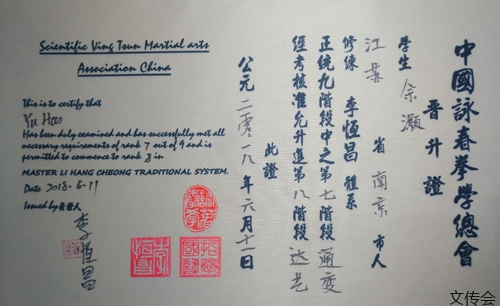 中國詠春拳學總會
晋升證
學生 余灝
江蘇省南京市人
修練 李恆昌 體系
正統九階段中之第七階段 通变
經考核准允升進第八階段 达艺
此證
公元二〇一八年六月十一日
Scientific Ving Tsun Martial arts
Association China
This is to certify that
Yu Hao
Has been duly examined and has successfully met all
necessary requirements of rank 7 out of 9 and is
permitted to commence to rank 8 in
MASTER LI HANG CHEONG TRADITIONAL SYSTEM.
Date 2018-6-11
Issued by 發證人
李恆昌
文传会